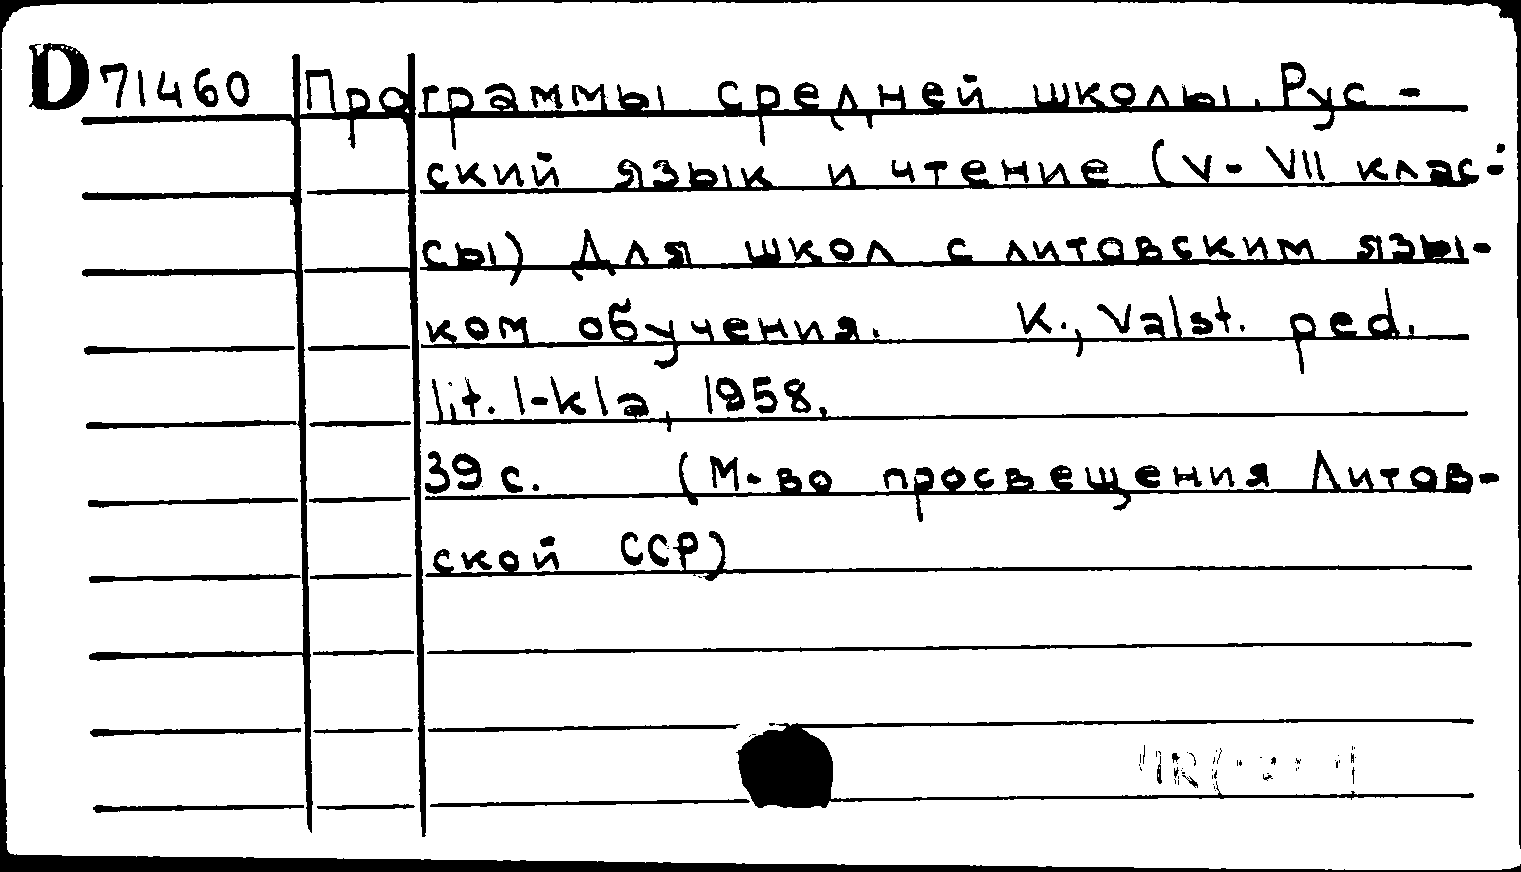 D 71460 Программы средней школы. Рус-
ский язык и чтение (V-VII клас-
сы) Для школ с литовским язы-
ком обучения. K., Valst. ped.
lit. l-kla, 1958.
39 с. (М-во просвещения Литов-
ской ССР)